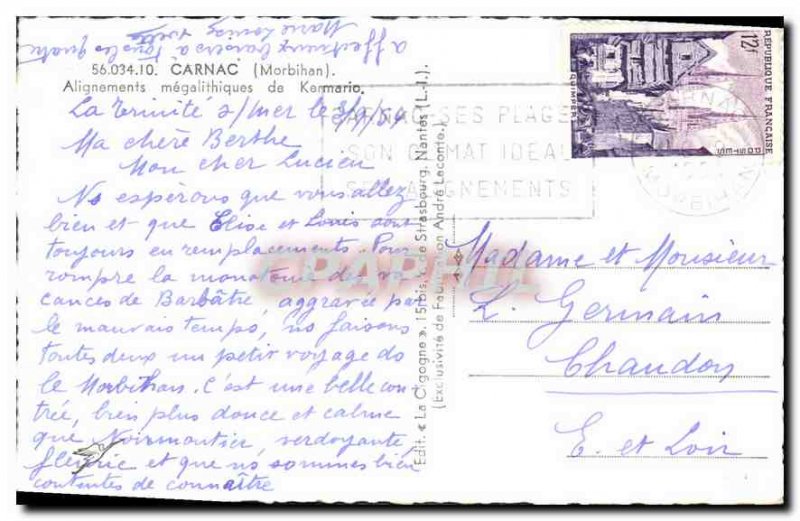 affectueux baisers à tous les quatre
Marie Louise
56.034.10. CARNAC (Morbihan).
Alignements mégalithiques de Kermario.
La Trinité s/mer le 3/9/54
Ma chère Berthe
Mon cher Lucien
Ns espérons que vous allez
bien et que Elise et Louis sont
toujours en remplacements. Pour
rompre la monotonie des va
cances de Barbâtre, aggravée par
le mauvais temps, ns faisons
toutes deux un petit voyage ds
le Morbihan. C'est une belle con
trée, bien plus douce et calme
que Noirmoutier, verdoyante
fleurie et que ns sommes bien
contentes de connaître
Edit. « La Cigogne ». 15bis, r. de Strasbourg. Nantes (L.-I.).
(Exclusivité de Fabrication André Leconte.)
SES PLAGES
SON CLIMAT IDEAL
SES ALIGNEMENTS
CARNAC
MORBIHAN
12F
RÉPUBLIQUE FRANÇAISE
POSTES
QUIMPER
Madame et Monsieur
L. Germain
Chaudon
E. et Loir
CPAPHIL